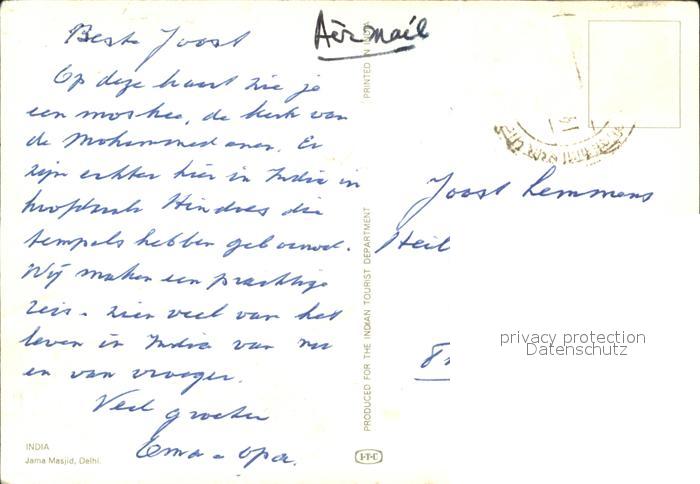 Beste Joost
Airmail
Op deze kaart zie je
een moskee, de kerk van
de Mohammedanen. Er
zijn echter hier in India in
hoofdzaak Hindoes die
tempels hebben gebouwd.
Wij maken een prachtige
reis. zien veel van het
leven in India van nu
en van vroeger.
Veel groeten
Oma - opa.
INDIA
Jama Masjid, Delhi.
PRINTED IN INDIA
PRODUCED FOR THE INDIAN TOURIST DEPARTMENT
I-T-C
Joost Lemmens
Heil
privacy protection
Datenschutz